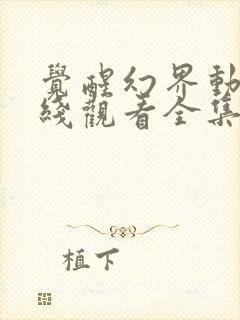 覺醒幻界動
綫觀看全集
植下